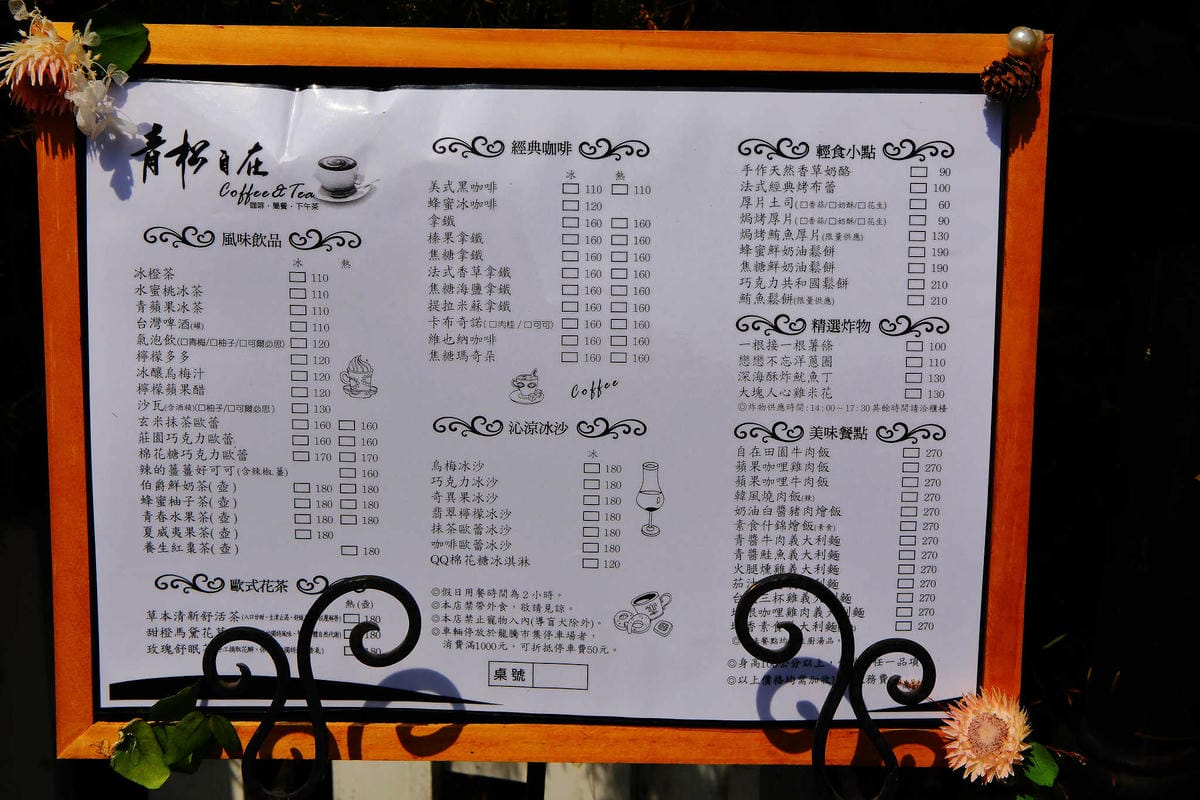 青松自在
Coffee & Tea
咖啡·簡餐·下午茶
風味飲品
冰 熱
冰橙茶 110
水蜜桃冰茶 110
青蘋果冰茶 110
台灣啤酒(罐) 110
氣泡飲(□青梅/□柚子/□可爾必思) 120
檸檬多多 120
冰釀烏梅汁 120
檸檬蘋果醋 120
沙瓦(含酒精)(□柚子/□可爾必思) 130
玄米抹茶歐蕾 160 160
莊園巧克力歐蕾 160 160
棉花糖巧克力歐蕾 170 170
辣的薑薑好可可(含辣椒.薑) 160
伯爵鮮奶茶(壺) 180 180
蜂蜜柚子茶(壺) 180 180
青春水果茶(壺) 180 180
夏威夷果茶(壺) 180
養生紅棗茶(壺) 180
歐式花茶
熱(壺)
草本清新舒活茶 180
甜橙馬黛花 180
玫瑰舒眠 180
經典咖啡
冰 熱
美式黑咖啡 110 110
蜂蜜冰咖啡 120
拿鐵 160 160
榛果拿鐵 160 160
焦糖拿鐵 160 160
法式香草拿鐵 160 160
焦糖海鹽拿鐵 160 160
提拉米蘇拿鐵 160 160
卡布奇諾(□肉桂/□可可) 160 160
維也納咖啡 160 160
焦糖瑪奇朵 160 160
Coffee
沁涼冰沙
冰
烏梅冰沙 180
巧克力冰沙 180
奇異果冰沙 180
翡翠檸檬冰沙 180
抹茶歐蕾冰沙 180
咖啡歐蕾冰沙 180
QQ棉花糖冰淇淋 120
◎假日用餐時間為2小時。
◎本店禁帶外食，敬請見諒。
◎本店禁止寵物入內(導盲犬除外)。
◎車輛停放於龍騰市集停車場者，
消費滿1000元，可折抵停車費50元。
桌號
輕食小點
手作天然香草奶酪 90
法式經典烤布蕾 100
厚片土司(□香蒜/□奶酥/□花生) 60
焗烤厚片(□香蒜/□奶酥/□花生) 90
焗烤鮪魚厚片(限量供應) 130
蜂蜜鮮奶油鬆餅 190
焦糖鮮奶油鬆餅 190
巧克力共和國鬆餅 210
鮪魚鬆餅(限量供應) 210
精選炸物
一根接一根薯條 100
戀戀不忘洋蔥圈 110
深海酥炸魷魚丁 130
大塊人心雞米花 130
◎炸物供應時間:14:00~17:30其餘時間請洽櫃檯
美味餐點
自在田園牛肉飯 270
蘋果咖哩雞肉飯 270
蘋果咖哩牛肉飯 270
韓風燒肉飯(辣) 270
奶油白醬豬肉燴飯 270
素食什錦燴飯(素食) 270
青醬牛肉義大利麵 270
青醬鮭魚義大利麵 270
火腿燻雞義大利麵 270
茄汁 義大利麵 270
三杯雞義大利麵 270
咖哩雞肉義大利麵 270
香素食 大利麵 270
餐點均 廚湯品。
◎身高 公分以上， 任一品項
◎以上價格均需加收 服務費